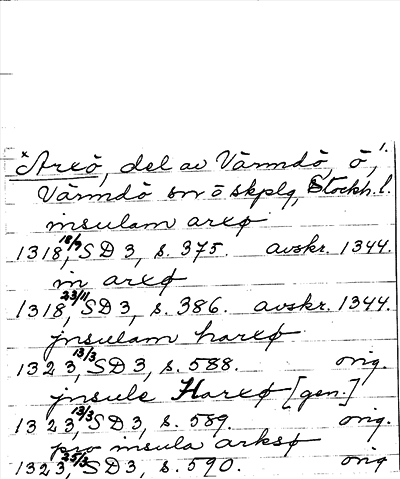 ×Arxö, del av Värmdö, ö, 1.
Värmdö sn ö skplg, Stockh. l.
insulam arxø
1318 18/9, SD 3, s. 375. avskr. 1344.
in arxø
1318 23/11, SD 3, s. 386. avskr. 1344.
jnsulam harxø
1323 13/3, SD 3, s. 588. orig.
jnsule Harxø [gen.]
1323 13/3, SD 3, s. 589. orig.
pro insula arksø
1323 25/3, SD 3, s. 590. orig